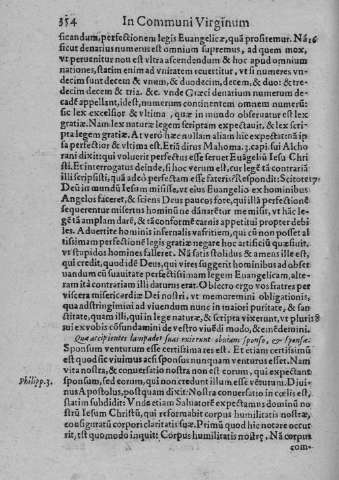 354 In Communi Virginum
ficandum, perfectionem legis Euangelicæ, quã profitemur. Nã 16
sicut denarius numerus est omnium supremus, ad quem mox,
vt peruenitur non est vltra ascendendum & hoc apud omnium
nationes, statim enim ad vnitatem reuertitur, vt si numeres vn-
decim sunt decem & vnus, duodecim, decem, & duo: & tre-
decim decem & tria. &c. vnde Græci denarium numerum de-
cadẽ appellant, id est, numerum continentem omnem numerũ:
sic lex excelsior & vltima, quæ in mundo obseruatur est lex
gratiæ. Nam lex naturæ legem scriptam expectauit, & lex scri-
pta legem gratiæ. At verò hæc nullam aliam hic expectat
sa perfectior & vltima est. Etiã dirus Mahoma. 3. capi. sui Alcho
rani dixit qui voluerit perfectus esse seruet Euãgeliũ Iesu Chri
sti. Et interrogatus deinde, si hoc verum est, cur legẽ tã contrariã
illi scripsisti, quã adeò perfectam esse fateris? Respondit: Scitote 17
Deũ in mundũ Iesum misisse, vt eius Euangelio ex hominibus
Angelos faceret, & sciens Deus paucos fore, qui illã perfectionẽ
sequerentur misertus hominũ ne dãnarẽtur me misit, vt hãc le-
gẽ tã amplam darẽ, & tã conformẽ carnis appetitui propter debi
les. Aduertite hominis infernalis vafritiem, qui cũ non posset al
tissimam perfectionẽ legis gratiæ negare hoc artificiũ quæsiuit.
vt stupidos homines falleret. Nã satis stolidus & amens ille est,
qui credit, quod idẽ Deus, qui vires suggerit hominibus ad obser
uandum cũ suauitate perfectissimam legem Euangelicam, alte-
ram ita contrariam illi daturus erat. Oblecro ergo vos fratres per
viscera misericordiæ Dei nostri, vt memoremini obligationis,
qua adstringimini ad viuendum nunc in maiori puritate, & san-
ctitate, quam illi, qui in lege naturæ, & scripta vixerunt, vt pluris 18
sui ex vobis cõfundamini de vestro viuẽdi modo, & emẽdemini.
Quæ accipientes lampades suas exierunt obuiam sponso, & sponsæ.
Sponsum venturum esse certissima res est. Et etiam certissimũ
est quod sic viuimus ac si sponsus nunquam venturus esset. Nam
vita nostra, & conuersatio nostra non est eorum, qui expectant
Philipp. 3. sponsum, sed eorum, qui non credunt illum esse vẽturum. Diui-
nus Apostolus, postquam dixit: Nostra conuersatio in cœlis est,
statim subdidit: Vnde etiam Saluatorẽ expectamus dominũ no
strũ Iesum Christũ, qui reformabit corpus humilitatis nostræ,
configuratũ corpori claritatis suæ. Primũ quod hic notare occur
rit, est quo modo inquit: Corpus humilitatis nostrę. Nã corpus
com-